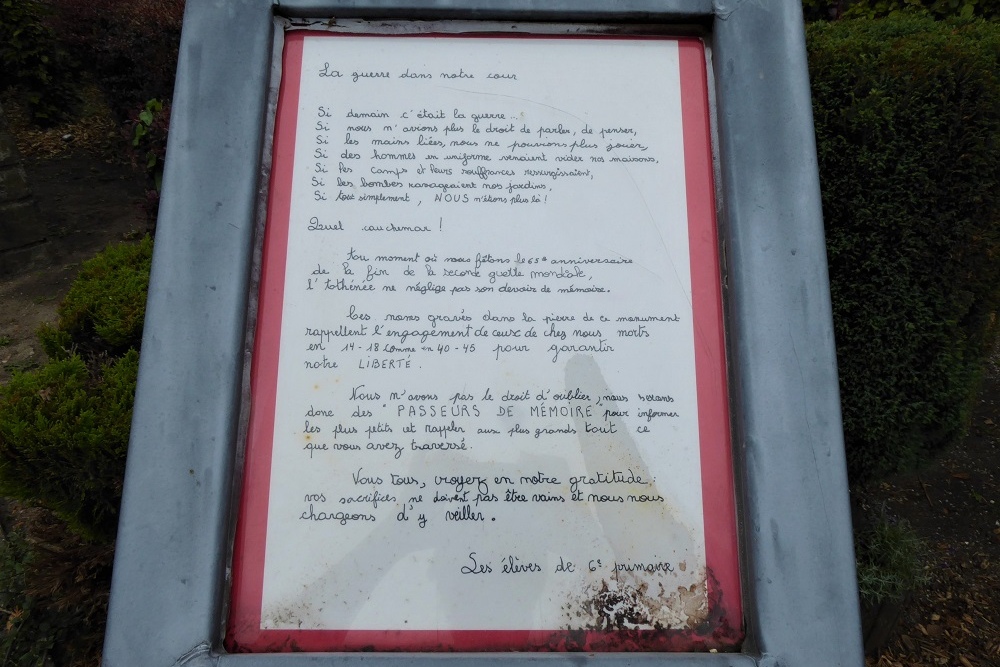 La guerre dans notre cour
Si demain c'était la guerre...
Si nous n'avions plus le droit de parler, de penser,
Si les mains liées, nous ne pouvions plus jouer,
Si des hommes en uniforme venaient vider nos maisons,
Si les camps et leurs souffrances ressurgissaient,
Si les bombes ravageaient nos jardins,
Si tout simplement, NOUS n'étions plus là !
Quel cauchemar !
Au moment où nous fêtons le 65e anniversaire
de la fin de la seconde guerre mondiale,
l'athénée ne néglige pas son devoir de mémoire.
Ces noms gravés dans la pierre de ce monument
rappellent l'engagement de ceux de chez nous morts
en 14-18 comme en 40-45 pour garantir
notre LIBERTÉ.
Nous n'avons pas le droit d'oublier, nous serons
donc des "PASSEURS DE MÉMOIRE" pour informer
les plus petits et rappeler aux plus grands tout ce
que vous avez traversé.
Vous tous, croyez en notre gratitude :
vos sacrifices ne doivent pas être vains et nous nous
chargeons d'y veiller.
Les élèves de 6e primaire